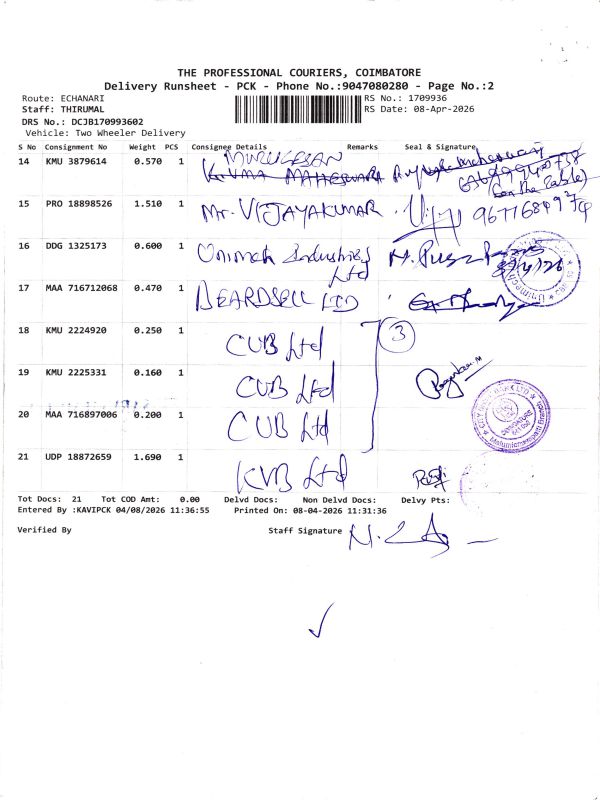 THE PROFESSIONAL COURIERS, COIMBATORE
Delivery Runsheet - PCK - Phone No.:9047080280 - Page No.:2
Route: ECHANARI RS No.: 1709936
Staff: THIRUMAL RS Date: 08-Apr-2026
DRS No.: DCJB170993602
Vehicle: Two Wheeler Delivery
S No Consignment No Weight PCS Consignee Details Remarks Seal & Signature
MURUGESAN
14 KMU 3879614 0.570 1
(on the table)
15 PRO 18898526 1.510 1 Mr. VIJAYAKUMAR
16 DDG 1325173 0.600 1 Unimech Industries
Ltd
17 MAA 716712068 0.470 1 BEARDSELL LTD
18 KMU 2224920 0.250 1 CUB Ltd 3
19 KMU 2225331 0.160 1 CUB Ltd
20 MAA 716897006 0.200 1 CUB Ltd
21 UDP 18872659 1.690 1 KVB Ltd
Tot Docs: 21 Tot COD Amt: 0.00 Delvd Docs: Non Delvd Docs: Delvy Pts:
Entered By :KAVIPCK 04/08/2026 11:36:55 Printed On: 08-04-2026 11:31:36
Verified By Staff Signature